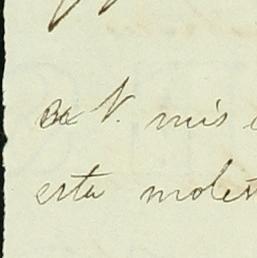 a V. mis
esta molest